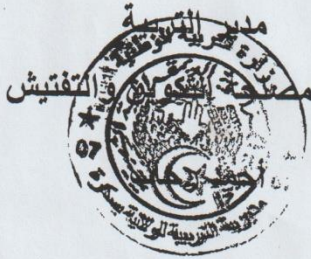 مدير التربية
مصلحة التكوين و التفتيش
وزارة التربية الوطنية
07
مديرية التربية لولاية بسكرة